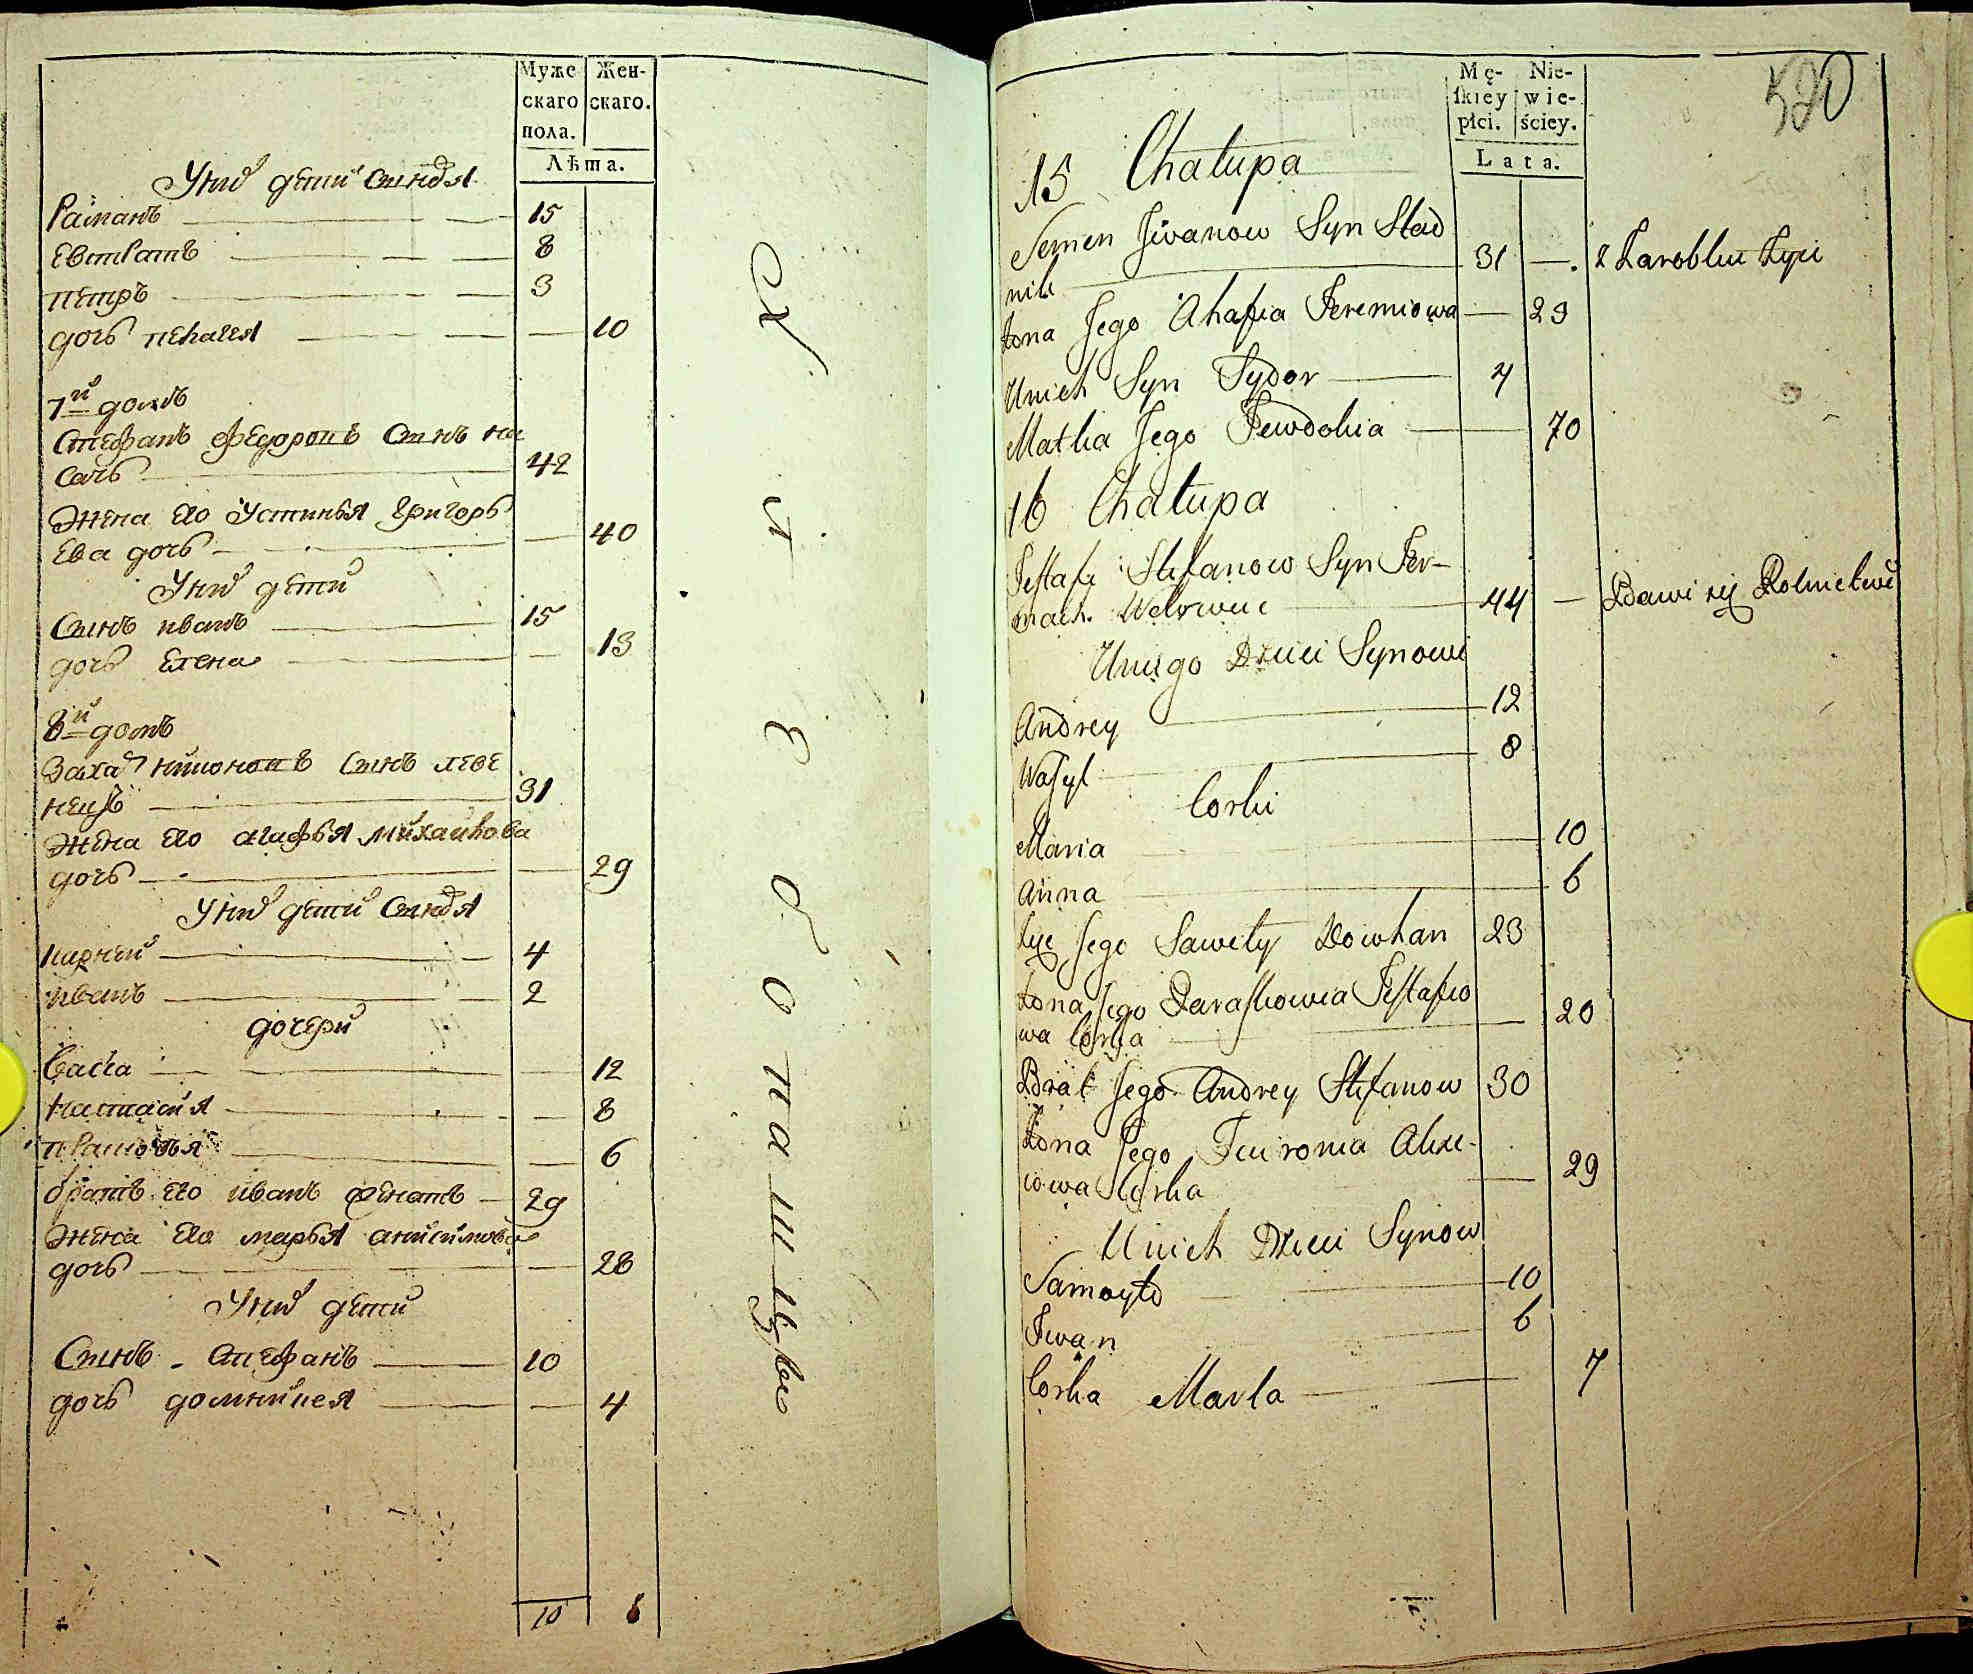 Муже
скаго
пола.
Жен-
скаго.
Лѣта.
У нихъ дети сыновья
Раманъ 15
Евстратъ 8
петръ 3
дочь пелагея 10
7й домъ
Стефанъ Федоровъ Сынъ на
сачь 42
Жена Его Устинья Григорь
Ева дочь 40
У нихъ дети
Сынъ иванъ 15
дочь Елена 13
8й домъ
Сынъ леве
нецъ 31
Жена Его агафья михайлова
дочь 29
У нихъ дети Сыновья
карней 4
иванъ 2
дочери
Васка 12
Настасия 8
6
братъ Его иванъ 29
Жена Его марья анисимова
дочь 28
У нихъ дети
Сынъ Стефанъ 10
дочь домникея 4
10 6
хлебопашцы
520
Mę-
ſkiey
płci.
Nie-
wie-
ściey.
Lata.
15 Chałupa
Semen Jwanow Syn Stad
nik 31 z Zarobku żyie
żona Jego Ahafia Jeremiowa 29
Unich Syn Sydor 4
Matka Jego Jewdokia 70
16 Chałupa
Jeſtafi Stefanow Syn Jer-
mach. 44 Bawi się Rolnictwē
Uniego Dzieci Synowie
Andrey 12
Waſyl 8
Corki
Maria 10
Anna 6
Zięć Jego Sawety Dowhan 23
żona Jego Paraſkowia Jeſtafio
wa Corka 20
Brat Jego Andrey Stefanow 30
żona Jego Fewronia Alexi-
iowa Corka 29
Unich Dzieci Synow
Samoyło 10
Jwan 6
Corka Marta 7